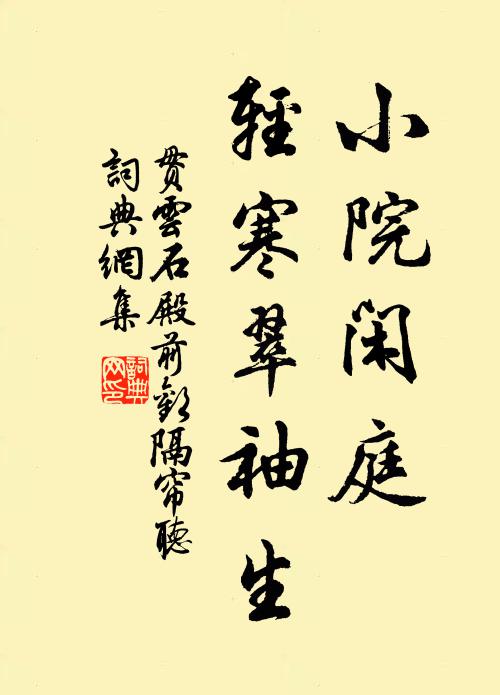 小院闲庭
輕寒翠袖生
貫雲石殿前歡隔帘聽
詞典網集
詞典網印